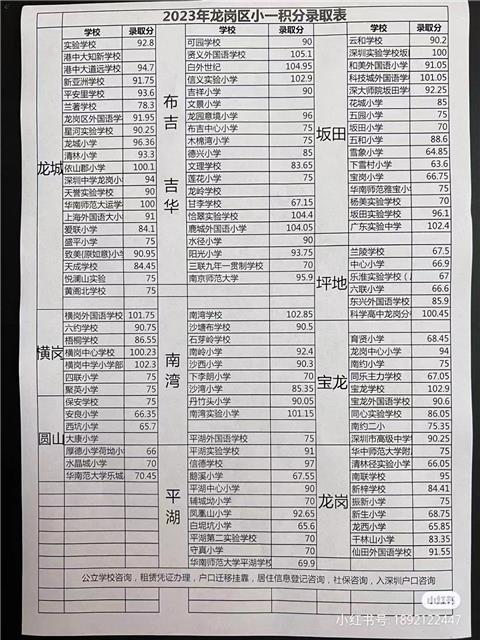 2023年龙岗区小一积分录取表
学校 录取分
龙城
实验学校 92.8
港中大知新学校
港中大道远学校 94.7
新亚洲学校 91.75
平安里学校 93.6
兰著学校 78.3
龙岗区外国语学 91.95
星河实验学校 90.25
龙城小学 96.36
清林小学 93.3
依山郡小学 100.1
深圳中学龙岗小 94
天誉实验学校 90
华南师范大运学 100
上海外国语大小 91
爱联小学 84.1
盛平小学 75
致美(原如意)小 90.95
天成学校 84.45
悦澜山实验 75
黄阁北学校 75
横岗
横岗外国语学校 101.75
六约学校 90.75
梧桐学校 86.55
横岗中心学校 100.23
横岗中学小学部 102.3
四联小学 75
聚英小学 75
保安学校 75
安良小学 66.35
圆山
西坑小学 65.7
大康小学
厚德小学荷坳小 66
水晶城小学 70
华南范大学乐城 70.45
学校 录取分
布吉 吉华
可园学校 90
贤义外国语学校 105.1
白外世纪 104.95
信义实验小学 102.9
吉祥小学 90
文景小学
龙园意境小学 96
布吉中心小学 75
木棉湾小学 75
德兴小学 85
文理学校 83.65
莲花小学 75
龙岭学校
甘李学校 67.15
怡翠实验学校 104.4
鹿城外国语小学 104.05
水径小学 90
阳光小学 93.75
三联九年一贯制学校 70
南京师范大学 95.9
南湾
南湾学校 102.85
沙塘布学校 90.5
石芽岭学校
南岭小学 92.4
沙西小学 90.3
下李朗小学 70
沙湾小学 85.35
丹竹头小学 90.05
南湾实验小学 101.15
平湖
平湖外国语学校 75
平湖实验学校 91
信德学校 97
鹅溪小学 67.55
平湖中心小学 90
辅城坳小学 70
凤凰山小学 92.65
白坭坑小学 65.6
平湖第二实验学校 70
守真小学 70
华南师范大学平湖学校 69.9
学校 录取分
坂田
云和学校 90.2
深圳实验学校坂田 100
和美外国语小学 91.05
科技城外国语学校 101.05
深大师院坂田学校 92.25
花城小学 85
五园小学 75
坂田小学 70
五和小学 88.6
雪象小学 64.85
下雪村小学 63.6
宝岗小学 66.75
华南师范雅宝小 75
杨美实验学校 70
坂田实验学校 96.1
广东实验中学 102.4
坪地
兰陵学校 67.5
中心小学 66.9
乐淮实验学校 67
六联小学 66.6
东兴外国语学校 85.9
科学高中龙岗分 100.45
宝龙
育贤小学 68.45
龙岗中心小学 94
南约小学 75
同乐主力学校 67.05
宝龙学校 102.9
宝龙外国语学校 90.6
同心实验学校 86.05
南约二小 75.35
深圳市高级中学 90.25
龙岗
华中师范大学附 75
清林径实验小学 66.05
南联学校 95
新梓学校 84.41
振新小学 75
新生小学 68.75
龙西小学 65.85
干林山小学 83.35
仙田外国语学校 91.55
公立学校咨询，租赁凭证办理，户口迁移挂靠，居住信息登记咨询，社保咨询，入深圳户口咨询
小红书
小红书号: 1892122447